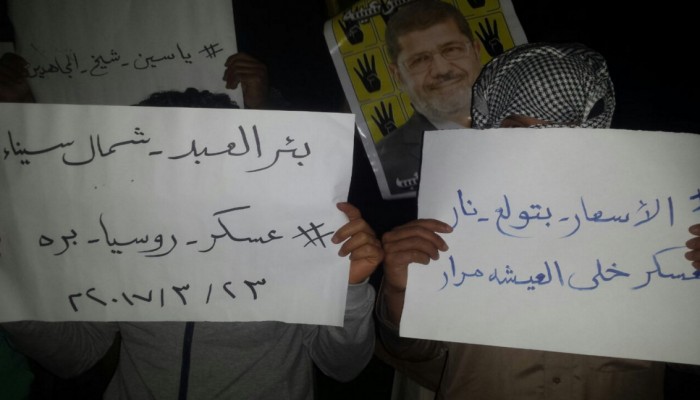 #ياسين_شيخ_المجاهدين
بئر العبد_شمال سيناء
#عسكر_روسيا_بره
٢٣/٣/٢٠١٧م
#الأسعار_بتولع_نار
عسكر خلى العيشه مرار